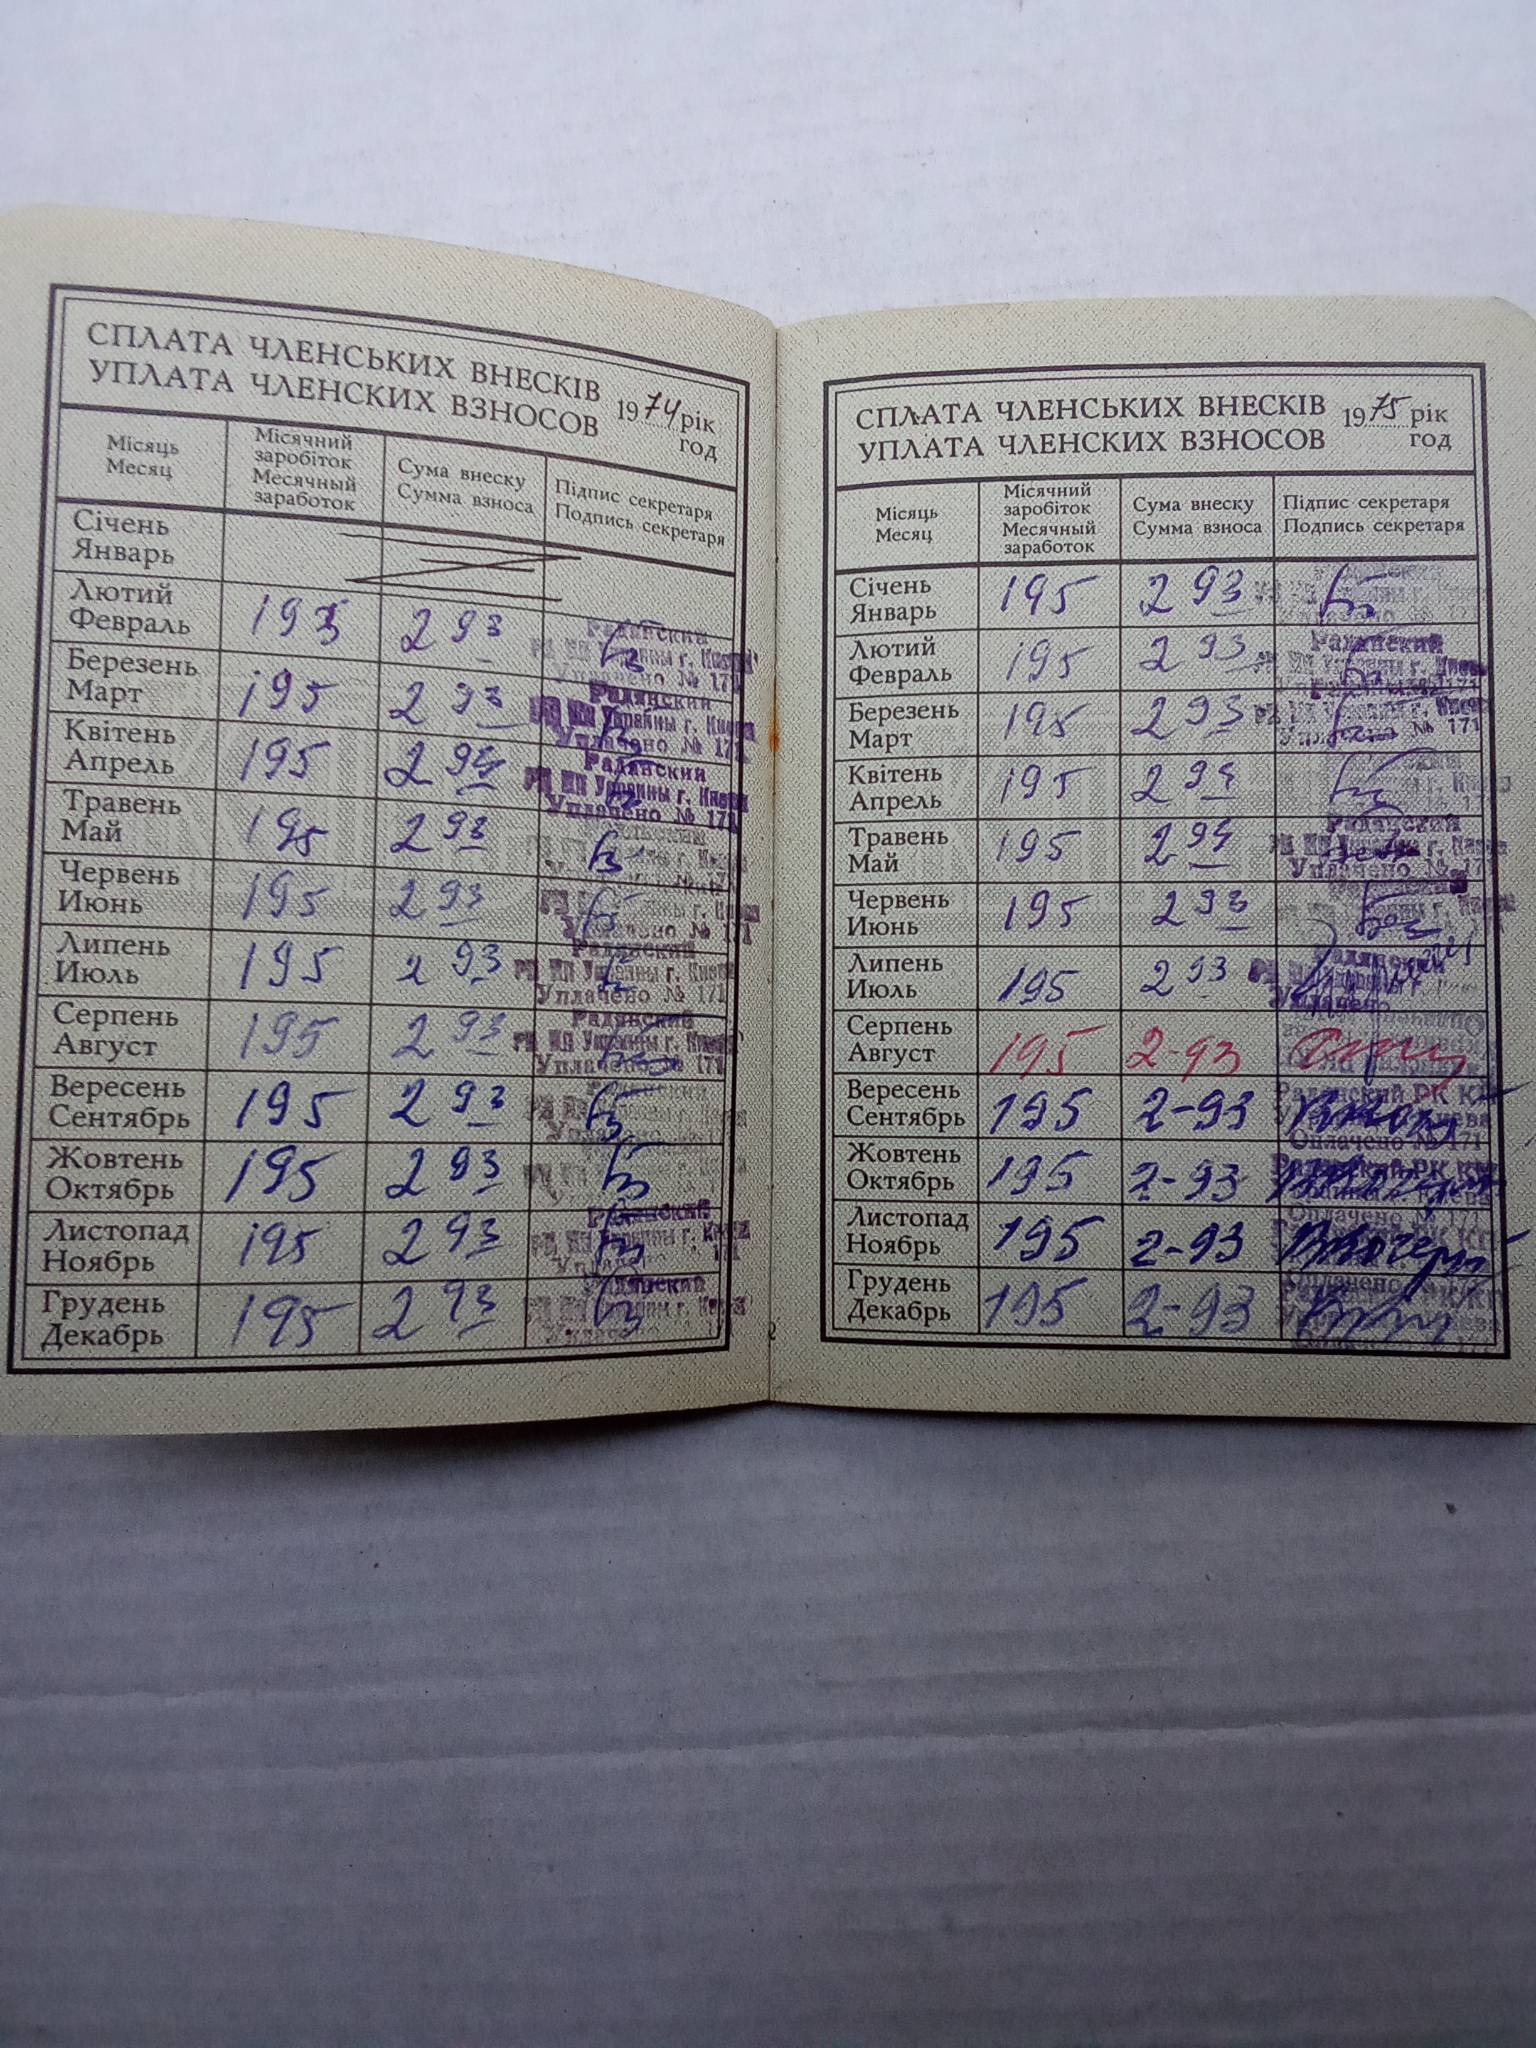 СПЛАТА ЧЛЕНСЬКИХ ВНЕСКІВ
УПЛАТА ЧЛЕНСКИХ ВЗНОСОВ
1974 рік
год
Місяць
Месяц
Місячний
заробіток
Месячный
заработок
Сума внеску
Сумма взноса
Підпис секретаря
Подпись секретаря
Січень
Январь
Лютий
Февраль
195
2 93
Радянский
РК КП Украины г. Киева
Уплачено № 171
Березень
Март
195
2 93
Радянский
РК КП Украины г. Киева
Уплачено № 171
Квітень
Апрель
195
2 94
Радянский
РК КП Украины г. Киева
Уплачено № 171
Травень
Май
195
2 93
г. Киева
Червень
Июнь
195
2 93
г. Киева
№ 171
Липень
Июль
195
2 93
Радянский
РК КП Украины г. Киева
Уплачено № 171
Серпень
Август
195
2 93
Радянский
РК КП Украины г. Киева
Уплачено № 171
Вересень
Сентябрь
195
2 93
Жовтень
Октябрь
195
2 93
Листопад
Ноябрь
195
2 93
Радянский
РК КП Украины г. Киева
Грудень
Декабрь
195
2 93
Радянский
РК КП Украины г. Киева
СПЛАТА ЧЛЕНСЬКИХ ВНЕСКІВ
УПЛАТА ЧЛЕНСКИХ ВЗНОСОВ
1975 рік
год
Місяць
Месяц
Місячний
заробіток
Месячный
заработок
Сума внеску
Сумма взноса
Підпис секретаря
Подпись секретаря
Січень
Январь
195
2 93
Лютий
Февраль
195
2 93
Радянский
РК КП Украины г. Киева
Березень
Март
195
2 93
РК КП Украины г. Киева
№ 171
Квітень
Апрель
195
2 94
Травень
Май
195
2 94
Радянский
РК КП Украины г. Киева
Уплачено № 171
Червень
Июнь
195
2 93
г. Киева
Липень
Июль
195
2 93
Радянский
Уплачено
Серпень
Август
195
2-93
Вересень
Сентябрь
195
2-93
Радянский РК КП
Оплачено № 171
Жовтень
Октябрь
195
2-93
Листопад
Ноябрь
195
2-93
Грудень
Декабрь
195
2-93